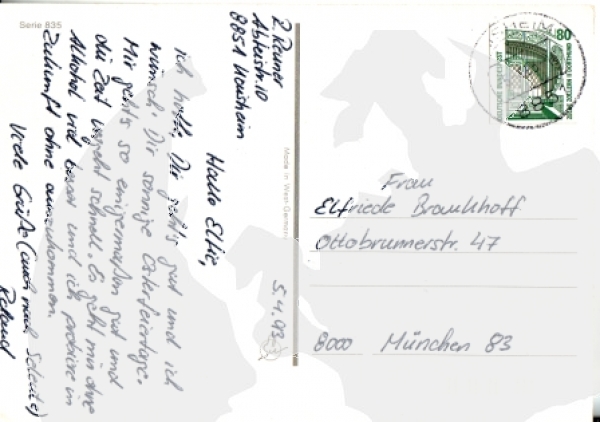 Serie 835
R. Renner
Abteistr. 10
8851 Kaisheim
5.4.93
Hallo Elfie,
ich hoffe, Dir geht's gut und ich
wünsch' Dir sonnige Osterfeiertage.
Mir geht's so einigermaßen gut und
die Zeit vergeht schnell. Es geht mir ohne
Alkohol viel besser und ich probiere in
Zukunft ohne auszukommen.
Viele Grüße (auch nach
Roland
Made in West-Germany
80
DEUTSCHE BUNDESPOST
Frau
Elfriede Brankhoff
Ottobrunnerstr. 47
8000 München 83